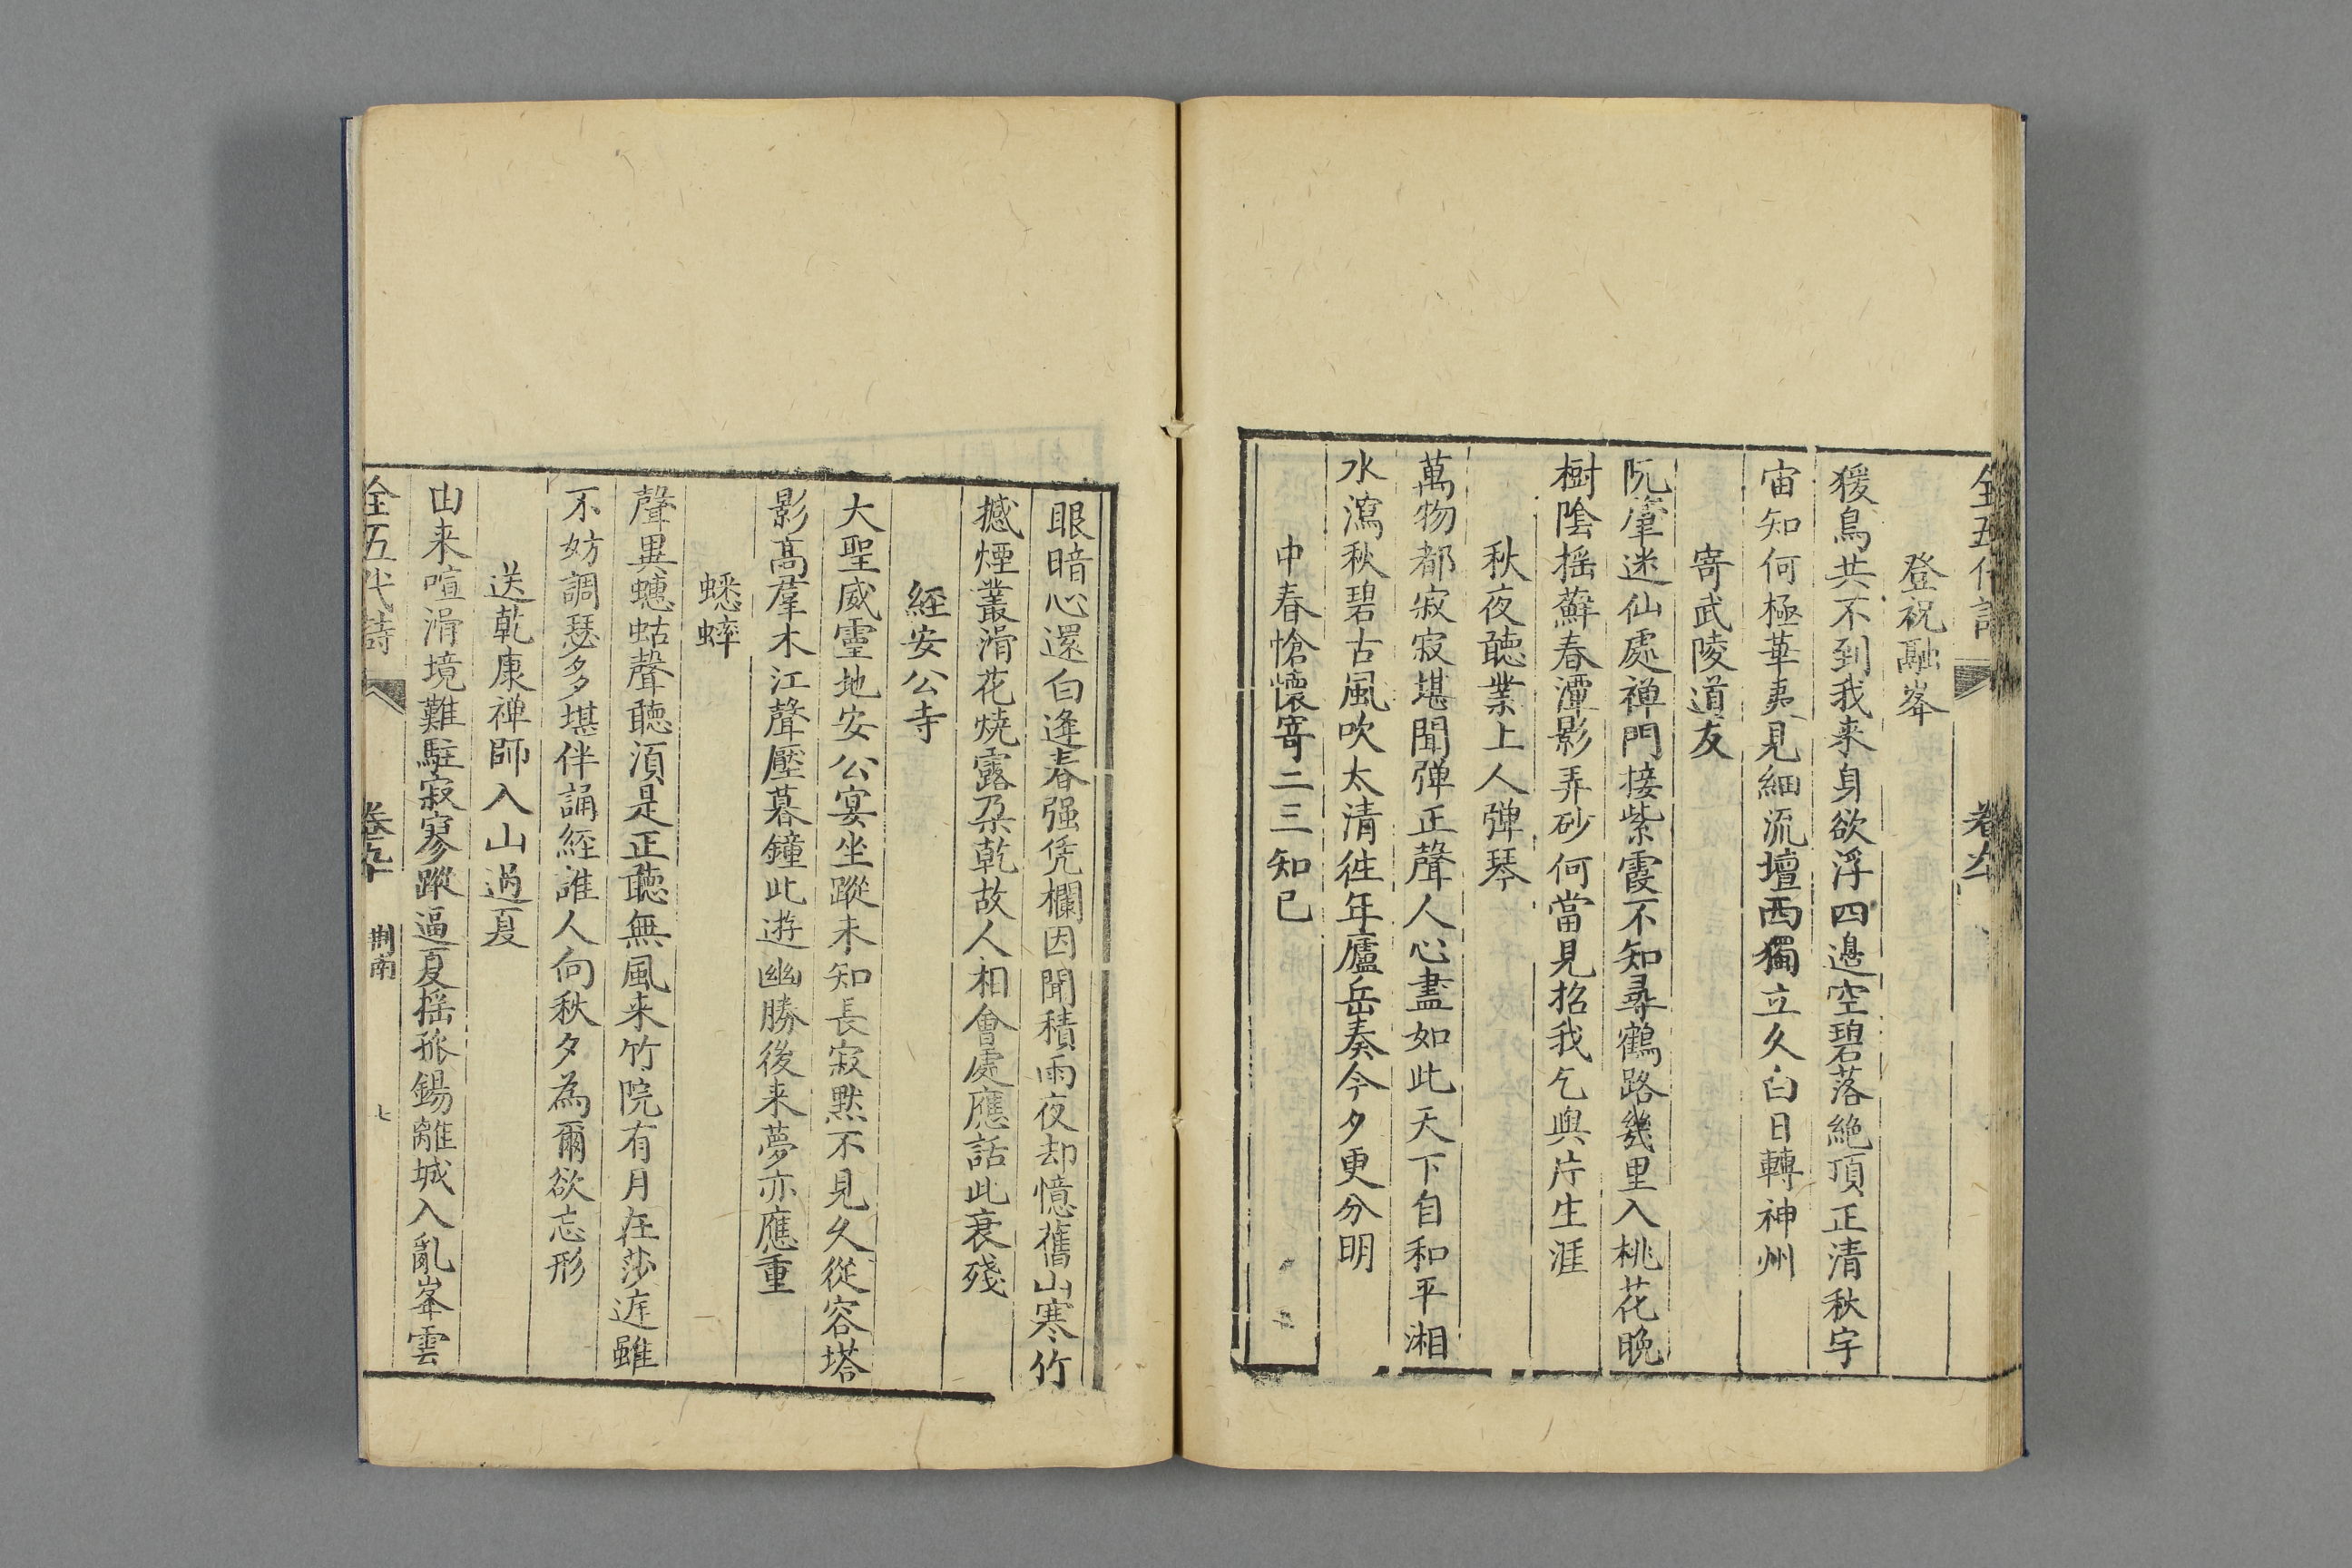 全五代詩 卷九
登祝融峯
猨鳥共不到我来身欲浮四邉空碧落絶頂正清秋宇
宙知何極華夷見細流壇西獨立久白日轉神州
寄武陵道友
阮肇迷仙處禅門接紫霞不知尋鶴路幾里入桃花晚
樹陰揺蘚春潭影弄砂何當見招我乞與片生涯
秋夜聴業上人弾琴
萬物都寂寂堪聞弾正聲人心盡如此天下自和平湘
水瀉秋碧古風吹太清徃年廬岳奏今夕更分明
中春愴懷寄二三知己
眼暗心還白逢春强凭欄因聞積雨夜却憶舊山寒竹
撼煙叢滑花燒露朶乾故人相會處應話此衰殘
經安公寺
大聖威靈地安公宴坐蹤未知長寂黙不見久從容塔
影高羣木江聲壓暮鐘此遊幽勝後来夢亦應重
蟋蟀
聲異蟪蛄聲聴湏是正聴無風来竹院有月在莎庭雖
不妨調瑟多堪伴誦經誰人向秋夕為爾欲忘形
送乾康禅師入山過夏
由来喧滑境難駐寂寥蹤逼夏揺孤錫離城入亂峯雲
全五代詩 卷九十 荆南 七